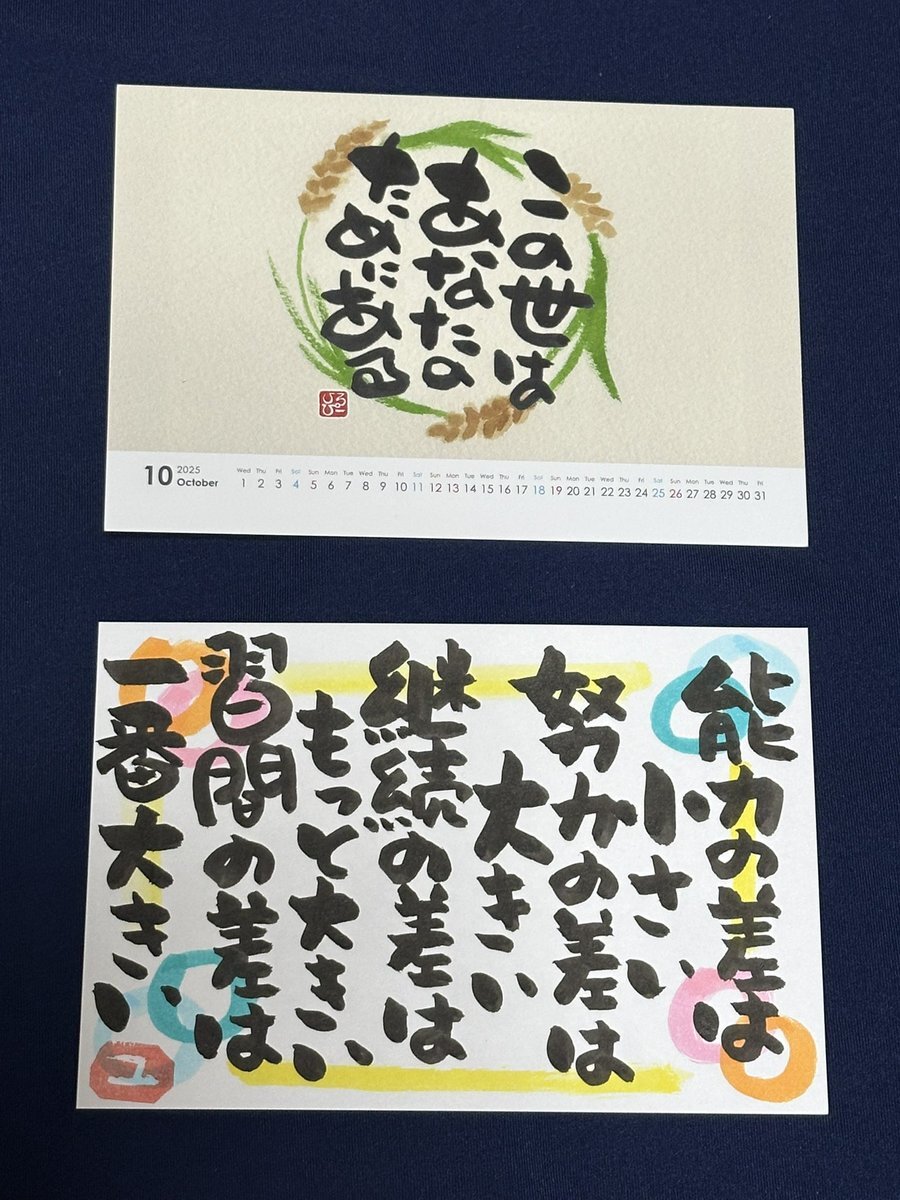 この世は
あなたの
ためにある
10 2025 October
Wed Thu Fri Sat Sun Mon Tue Wed Thu Fri Sat Sun Mon Tue Wed Thu Fri Sat Sun Mon Tue Wed Thu Fri Sat Sun Mon Tue Wed Thu Fri
1 2 3 4 5 6 7 8 9 10 11 12 13 14 15 16 17 18 19 20 21 22 23 24 25 26 27 28 29 30 31
能力の差は
小さい
努力の差は
大きい
継続の差は
もっと大きい
習間の差は
一番大きい